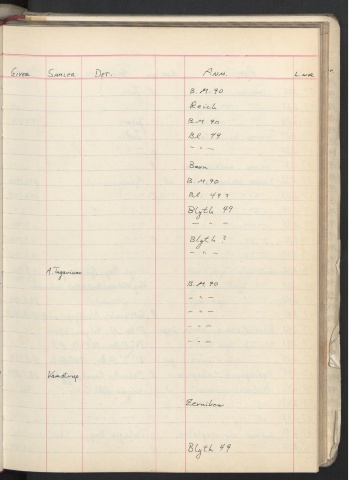 GIVER SAMLER DET. ANM. L. NR
B.M. 90
Reich
B.M. 90
Bl. 49
- " -
Bavn
B.M. 90
Bl. 49 ?
Blyth 49
- " -
Blyth ?
- " -
A.
B.M. 90
- " -
- " -
- " -
- " -
Vandrup
Blyth 49